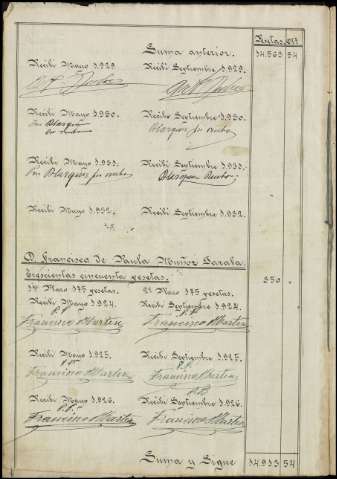 Pesetas Cts
Suma anterior. 14.563 54
Recibí Mayo 1.929. Recibí Septiembre 1.929.
Recibí Mayo 1.930. Recibí Septiembre 1.930.
Recibí Mayo 1.931. Recibí Septiembre 1.931.
Recibí Mayo 1.932. Recibí Septiembre 1.932.
D. Francisco de Paula Muñoz Zarata.
Trescientas cincuenta pesetas. 350
1er Mayo 175 pesetas. 2ª Mayo 175 pesetas.
Recibí Mayo 1.924. Recibí Septiembre 1.924.
P.P. P.P.
Francisco Martin Francisco Martin
Recibí Mayo 1.925. Recibí Septiembre 1.925.
P.P. P.P.
Francisco Martin Francisco Martin
Recibí Mayo 1.926. Recibí Septiembre 1.926.
P.P. P.P.
Francisco Martin Francisco Martin
Suma y Sigue 14.913 54